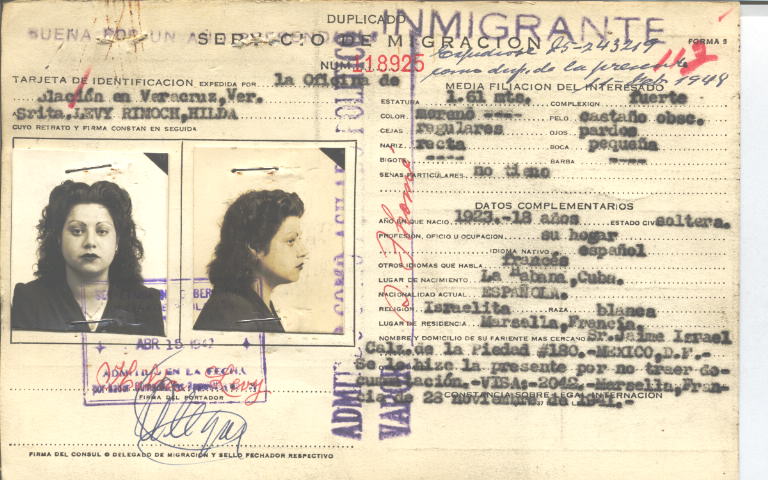 DUPLICADO
INMIGRANTE
BUENA POR UN AÑO
SERVICIO DE MIGRACION
FORMA 5
Expediente 25-243219
NUM. 118925
como dup. de la presente
113
11- 1948
TARJETA DE IDENTIFICACION EXPEDIDA POR la Oficina de
blación en Veracruz, Ver.
A Srita. LEVY RINOCH, HILDA
CUYO RETRATO Y FIRMA CONSTAN EN SEGUIDA
ABR 15 1942
ADMITIDA EN LA FECHA
Hilda Levy
FIRMA DEL PORTADOR
FIRMA DEL CONSUL O DELEGADO DE MIGRACION Y SELLO FECHADOR RESPECTIVO
ADMIT COMO ASILADO POLITICO
MEDIA FILIACION DEL INTERESADO
ESTATURA 1.61 mts. COMPLEXION fuerte
COLOR moreno ---- PELO castaño obsc.
CEJAS regulares OJOS pardos
NARIZ recta BOCA pequeña
BIGOTE ---- BARBA ----
SEÑAS PARTICULARES no tiene
DATOS COMPLEMENTARIOS
AÑO EN QUE NACIO 1923.-18 años ESTADO CIVIL soltera.
PROFESION, OFICIO U OCUPACION su hogar
IDIOMA NATIVO español
OTROS IDIOMAS QUE HABLA francés
LUGAR DE NACIMIENTO La Habana, Cuba.
NACIONALIDAD ACTUAL ESPAÑOLA.
RELIGION Israelita RAZA blanca
LUGAR DE RESIDENCIA Marsella, Francia.
NOMBRE Y DOMICILIO DE SU PARIENTE MAS CERCANO Sr. Jaime Israel
Calz. de la Piedad #180.-MEXICO, D.F.-
Se le hizo la presente por no traer do-
cumentación.-VISA:-2042.-Marsella, Fran-
CONSTANCIA SOBRE LEGAL INTERNACION
cia de 23 noviembre de 1941.-